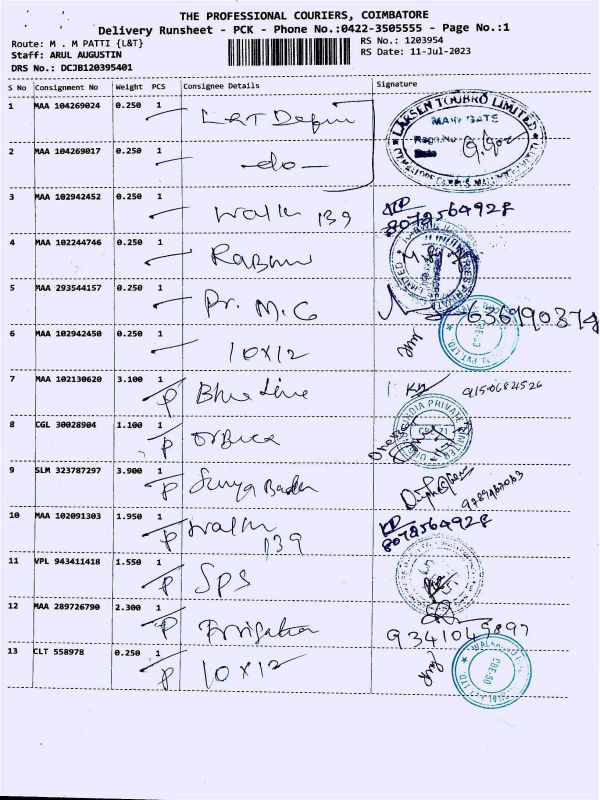 THE PROFESSIONAL COURIERS, COIMBATORE
Delivery Runsheet - PCK - Phone No.:0422-3505555 - Page No.:1
Route: M . M PATTI {L&T}
RS No.: 1203954
Staff: ARUL AUGUSTIN
RS Date: 11-Jul-2023
DRS No.: DCJB120395401
S No Consignment No Weight PCS Consignee Details Signature
1 MAA 104269024 0.250 1 L&T
LARSEN TOUBRO LIMITED
MAIN GATE
2 MAA 104269017 0.250 1 -do-
3 MAA 102942452 0.250 1 139
8072564928
4 MAA 102244746 0.250 1
5 MAA 293544157 0.250 1 Pr. M.C
636990374
6 MAA 102942450 0.250 1 10x12
7 MAA 102130620 3.100 1 P Blue Line
8 CGL 30028904 1.100 1 P
INDIA PRIVATE LIMITED
9 SLM 323787297 3.900 1 P Surya
10 MAA 102091303 1.950 1 P 139
8072564928
11 VPL 943411418 1.550 1 P SPS
12 MAA 289726790 2.300 1 P Irrigation
9341049897
13 CLT 558978 0.250 1 P 10x12
CBE-50